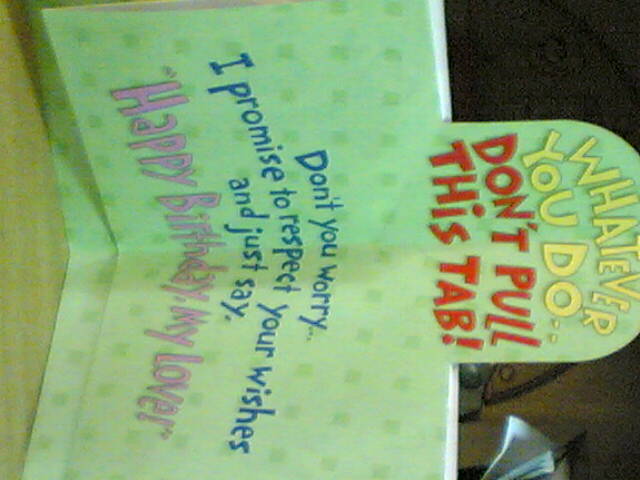 WHATEVER
YOU DO...
DON'T PULL
THIS TAB!
Don't you worry...
I promise to respect your wishes
and just say.
"Happy Birthday, My Lover"